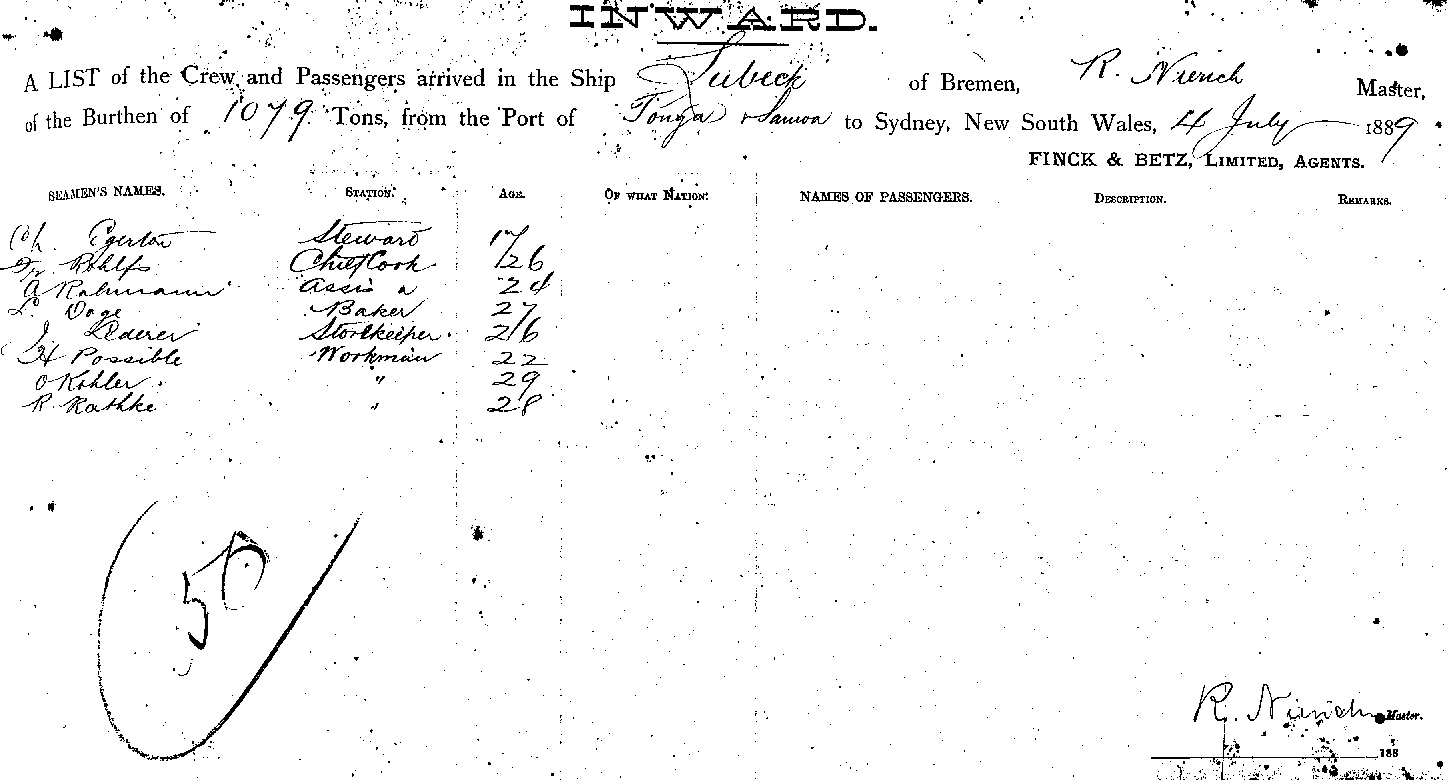 INWARD.
A LIST of the Crew and Passengers arrived in the Ship Lubeck of Bremen, R. Nierich Master,
of the Burthen of 1079 Tons, from the Port of Tonga & Samoa to Sydney, New South Wales, 4 July 1889
FINCK & BETZ, LIMITED, AGENTS.
SEAMEN'S NAMES. STATION. AGE. OF WHAT NATION. NAMES OF PASSENGERS. DESCRIPTION. REMARKS.
Ch Egerton Steward 17
Fr Rohlfs Chief Cook 26
A Rahmann Assis a 24
L. Doge Baker 27
J Lederer Storekeeper 26
H Possible Workman 22
O Kohler " 29
R Rathke " 28
50
R. Nierich Master.
188